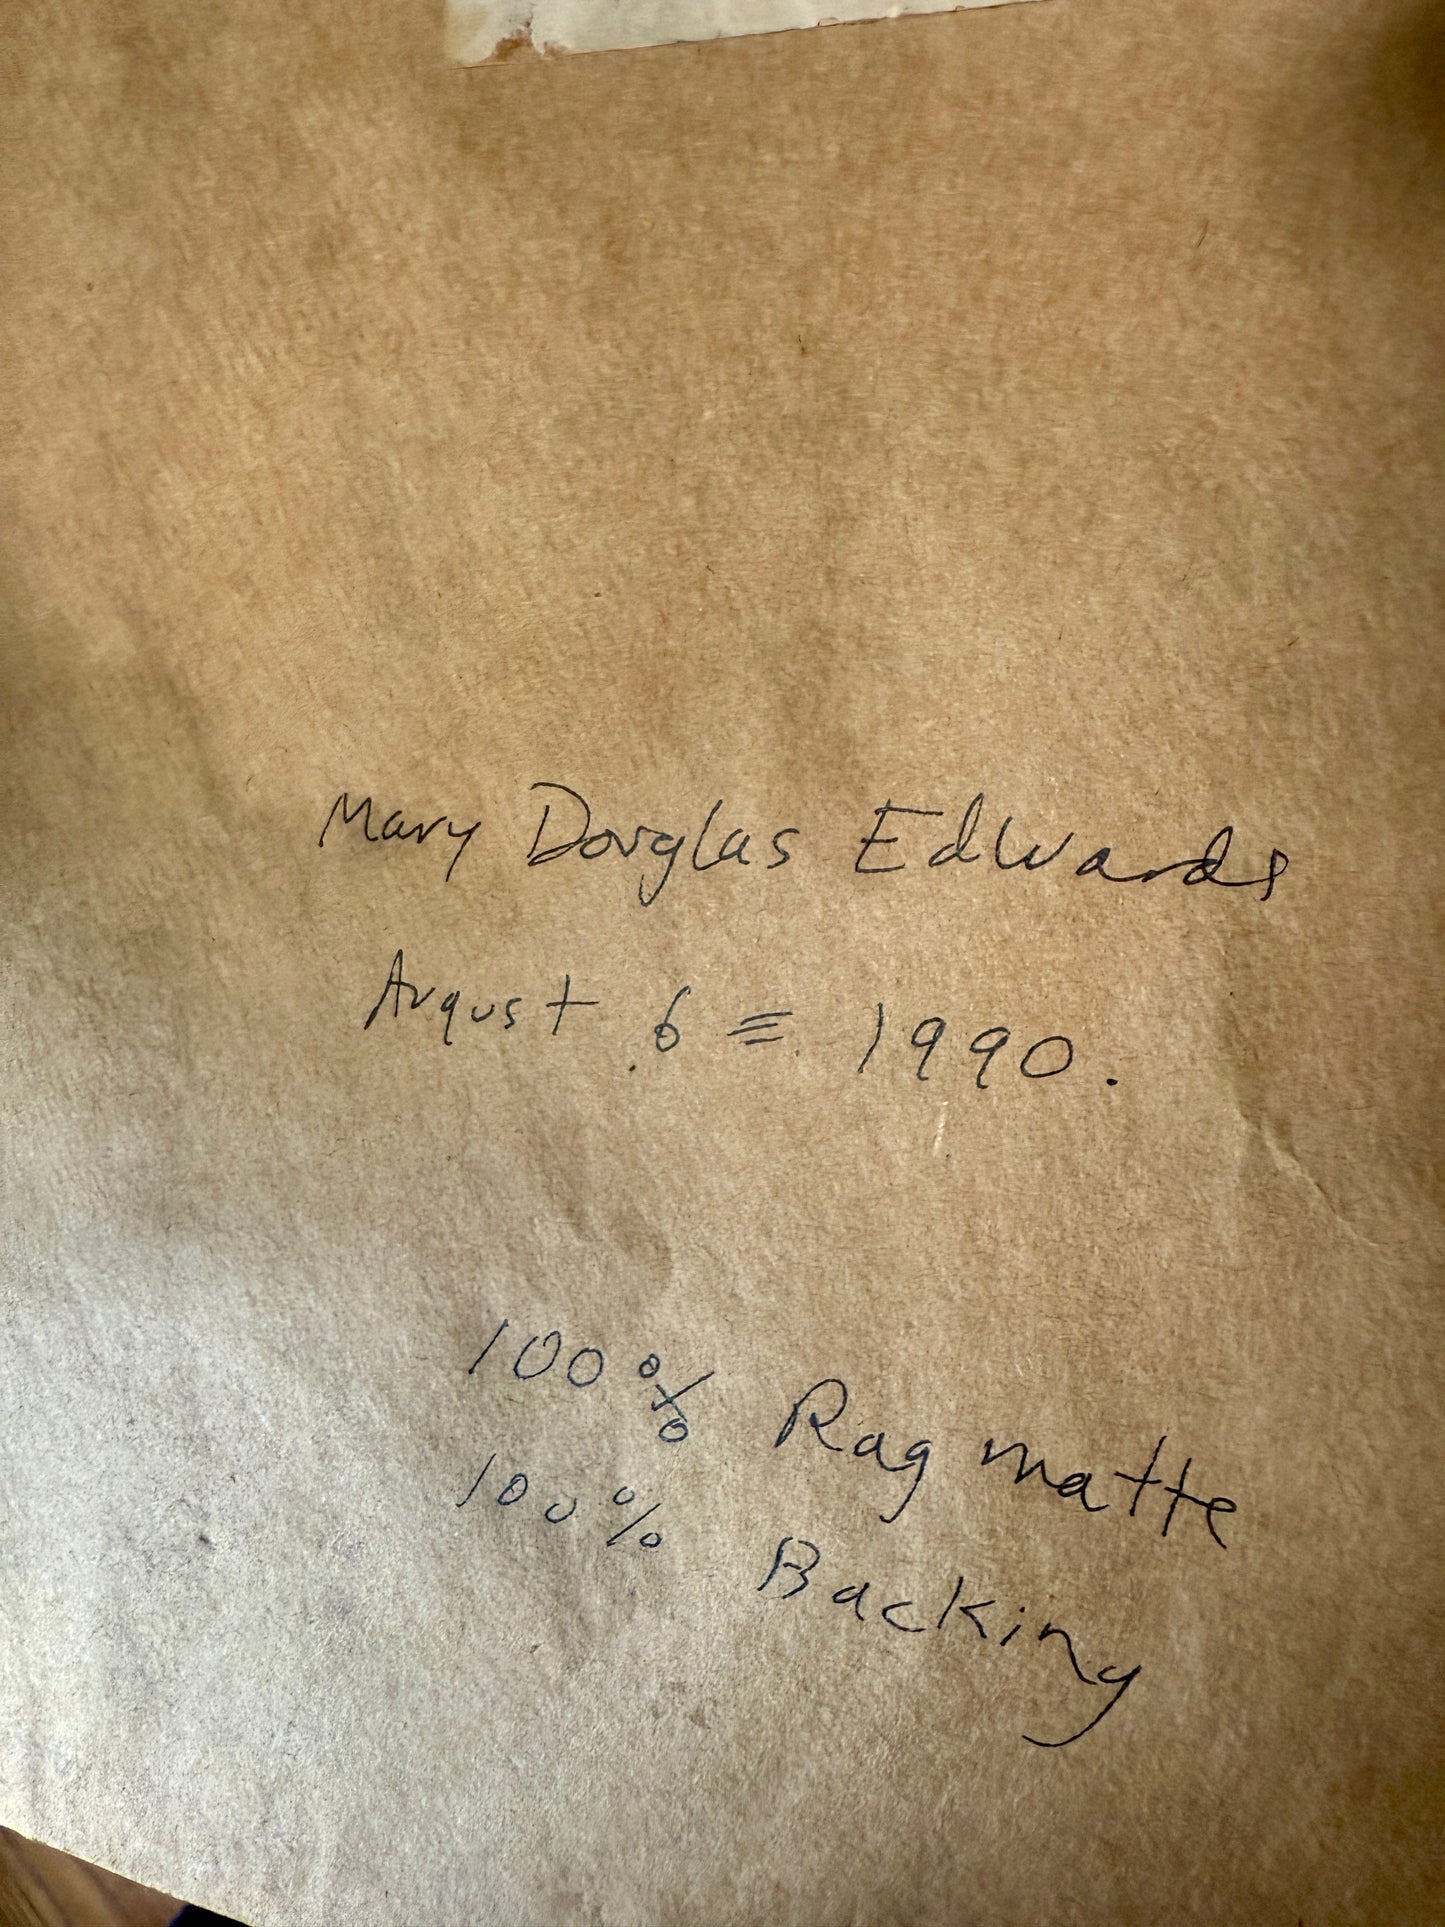 Mary Douglas Edwards
August 6 = 1990.
100% Rag matte
100% Backing